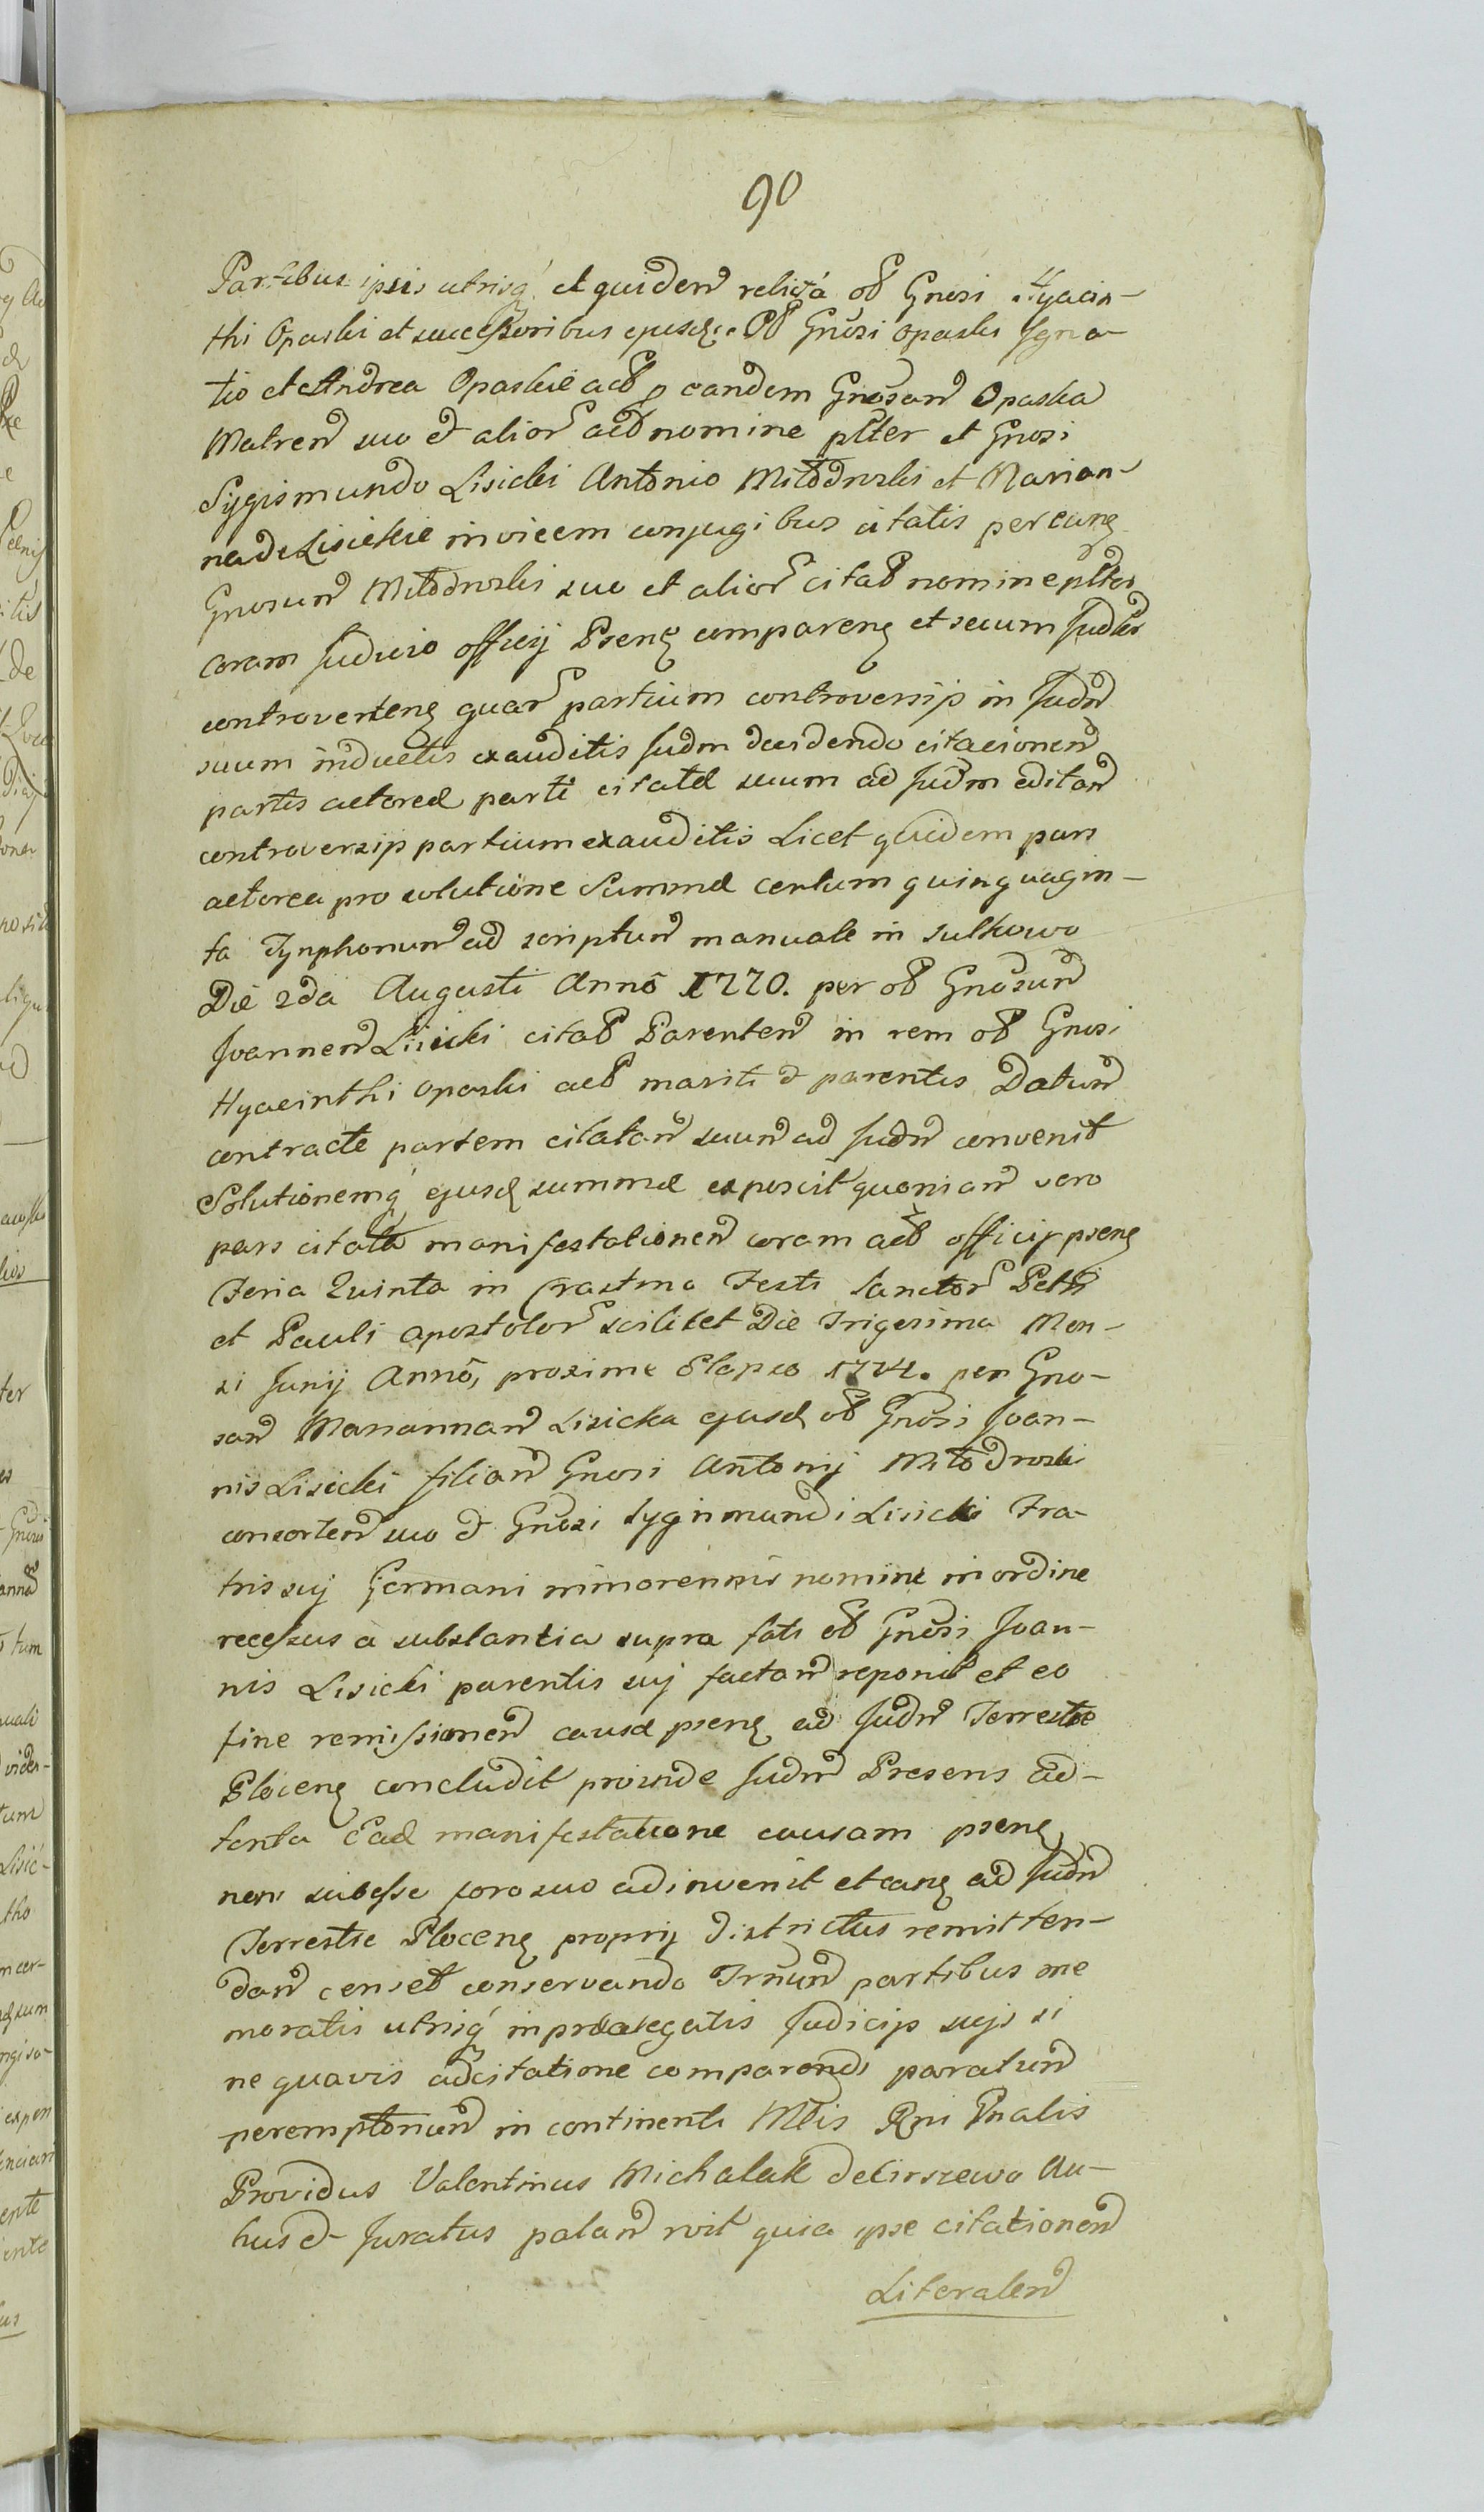 90
Partibus ipsis utrisq́ et quidem relictá ob Gnosi Hyacin-
thi Opaski et successoribus ejusd. Ob Gnosi Opaski Igna-
tio et Andrea Opaskie actb p eandem Gnosam Opaska
Matrem suo et alior actor nomine plter et Gnosi
Sygismundo Lisicki Antonio Młodzoski et Marian-
na de Lisickie invicem conjugibus citatis per eung
Gnosum suo et alior citat nomine plter
coram Judicio officij Pseng compareng et secum Judter
controverteng quar partium controversijs in Judm
suum inductis exauditis Judm decidendo citacionem
partis actoreæ parti citatæ suum ad Judm editam
controversijs partium exauditis Licet quidem pars
actorea pro solutione Summæ centum quinquagin-
ta Tynphorum ad scriptum manuale in Sulkowo
Die 2da Augusti Annô 1720. per ob Gnosum
Joannem Lisicki citat Parentem in rem ob Gnosi
Hyacinthi Opaski act mariti et parentis Datum
contracte partem citatam suum ad Judm convenit
Solutionemq́ ejusd summæ exposcit quoniam vero
pars citata manifestationem coram act officijs pseng
Feria Quinta in Crastino Festi Sanctor Petri
et Pauli Apostolor scilicet Die Trigesima Men-
si Junij Annô, proxime Elapso per Gno-
sam Mariannam Lisicka ejusd ob Gnosi Joan-
nis Lisicki filiam Gnosi Antonij
consortem suo et Gnosi Sygismundi Lisicki Fra-
tris suj Germani minorennis nomine in ordine
recessus a substantia supra fati ob Gnosi Joan-
nis Lisicki parentis suj factam reponit et eo
fine remissionem causæ pseng ad Judm Terrestre
Ploceng concludit proinde Judm Presens ad-
tenta Ead manifestatione causam pseng
non subesse foro suo adinvenit et eang ad Judm
Terrestre Ploceng proprij districtus remitten-
dam censet conservando Trnum partibus me
moratis utrisq́ in prælegatis Judicijs sujs si
ne quavis adcitatione comparendi paratum
peremptorium in continenti Mtis Rni Gnalis
Providus Valentinus Michalak de Cirszewo Au-
tus et Juratus palam rvit quia ipse citationem
Literalem